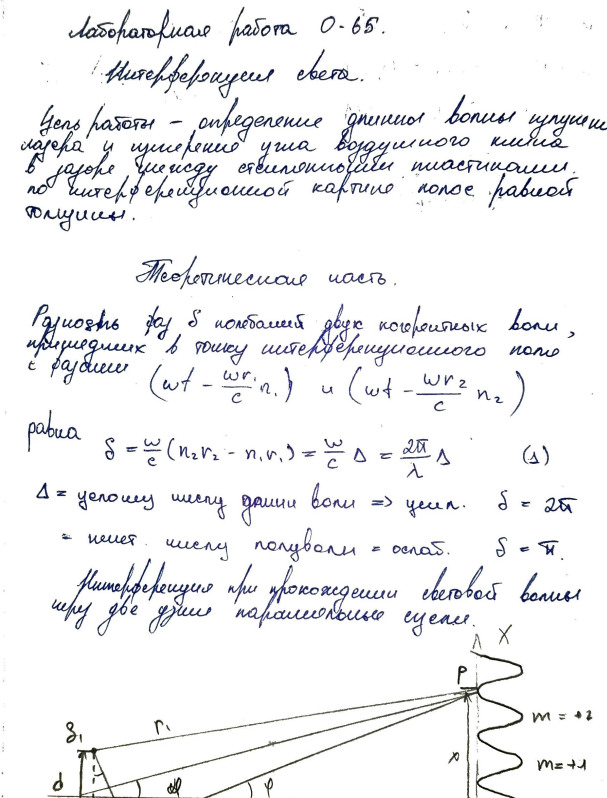 Лабораторная работа О-65.
Интерференция света.
Цель работы – определение длинны волны излучен
лазера и измерение угла воздушного клина
в зазоре между стеклянными пластинами
по интерференционной картине полос равной
толщины.
Теоретическая часть.
Разность фаз δ колебаний двух когерентных волн,
пришедших в точку интерференционного поля
с фазами (ωt - ωr₁/c n₁) и (ωt - ωr₂/c n₂)
равна
δ = ω/c (n₂r₂ - n₁r₁) = ω/c Δ = 2π/λ Δ (1)
Δ = целому числу длин волн => усил. δ = 2π
= нечет. числу полуволн = ослаб. δ = π.
Интерференция при прохождении световой волны
через две узкие параллельные щели.
X
P
S₁ r₁ m = +2
d φ φ x m = +1